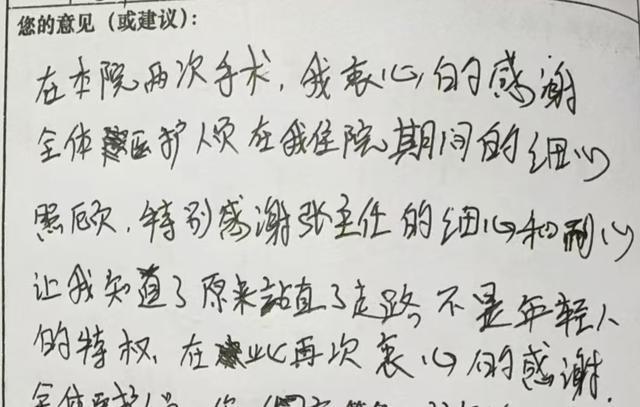 您的意见（或建议）：
在本院两次手术，我衷心的感谢
全体医护人员在我住院期间的细心
照顾，特别感谢张主任的细心和耐心
让我知道了原来站直了走路不是年轻人
的特权，在此再次衷心的感谢
全体医护人员